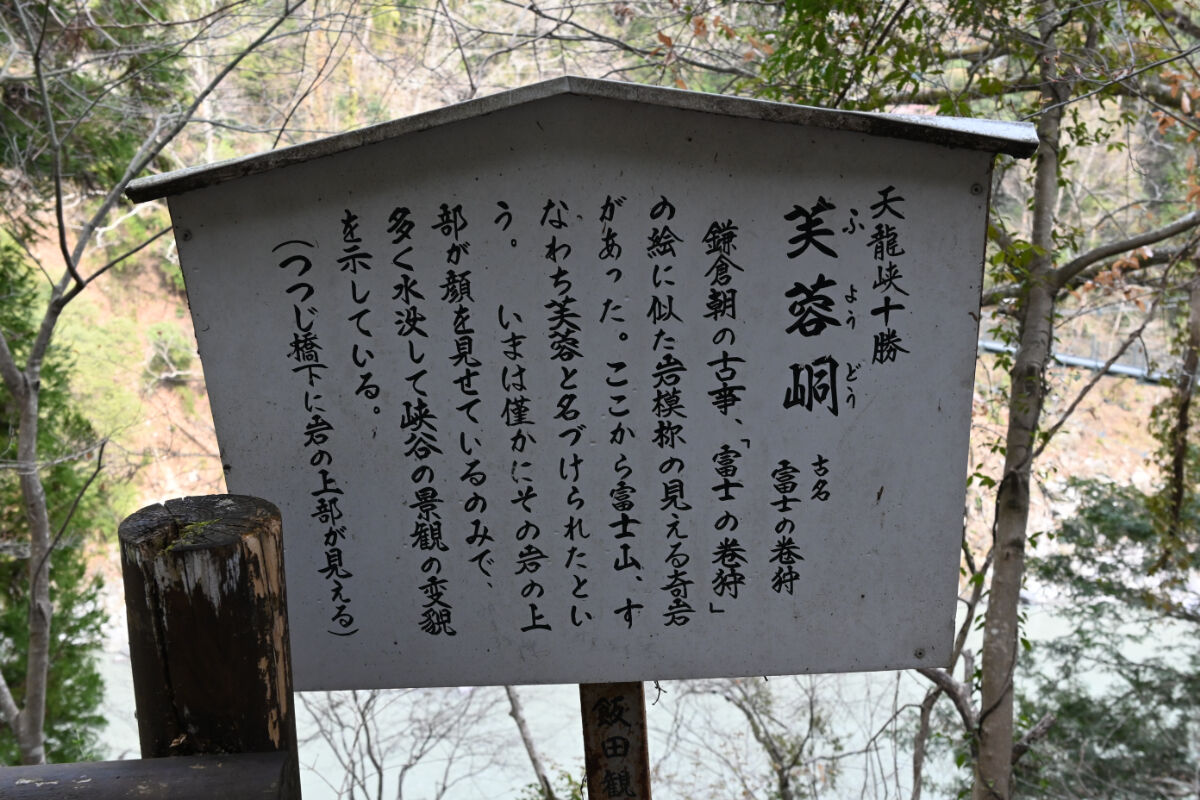 天龍峡十勝
芙蓉峒
ふようどう
古名
富士の巻狩
鎌倉朝の古事、「富士の巻狩」
の絵に似た岩模様の見える奇岩
があった。ここから富士山、す
なわち芙蓉と名づけられたとい
う。　いまは僅かにその岩の上
部が顔を見せているのみで、
多く水没して峡谷の景観の変貌
を示している。
（つつじ橋下に岩の上部が見える）
飯田観